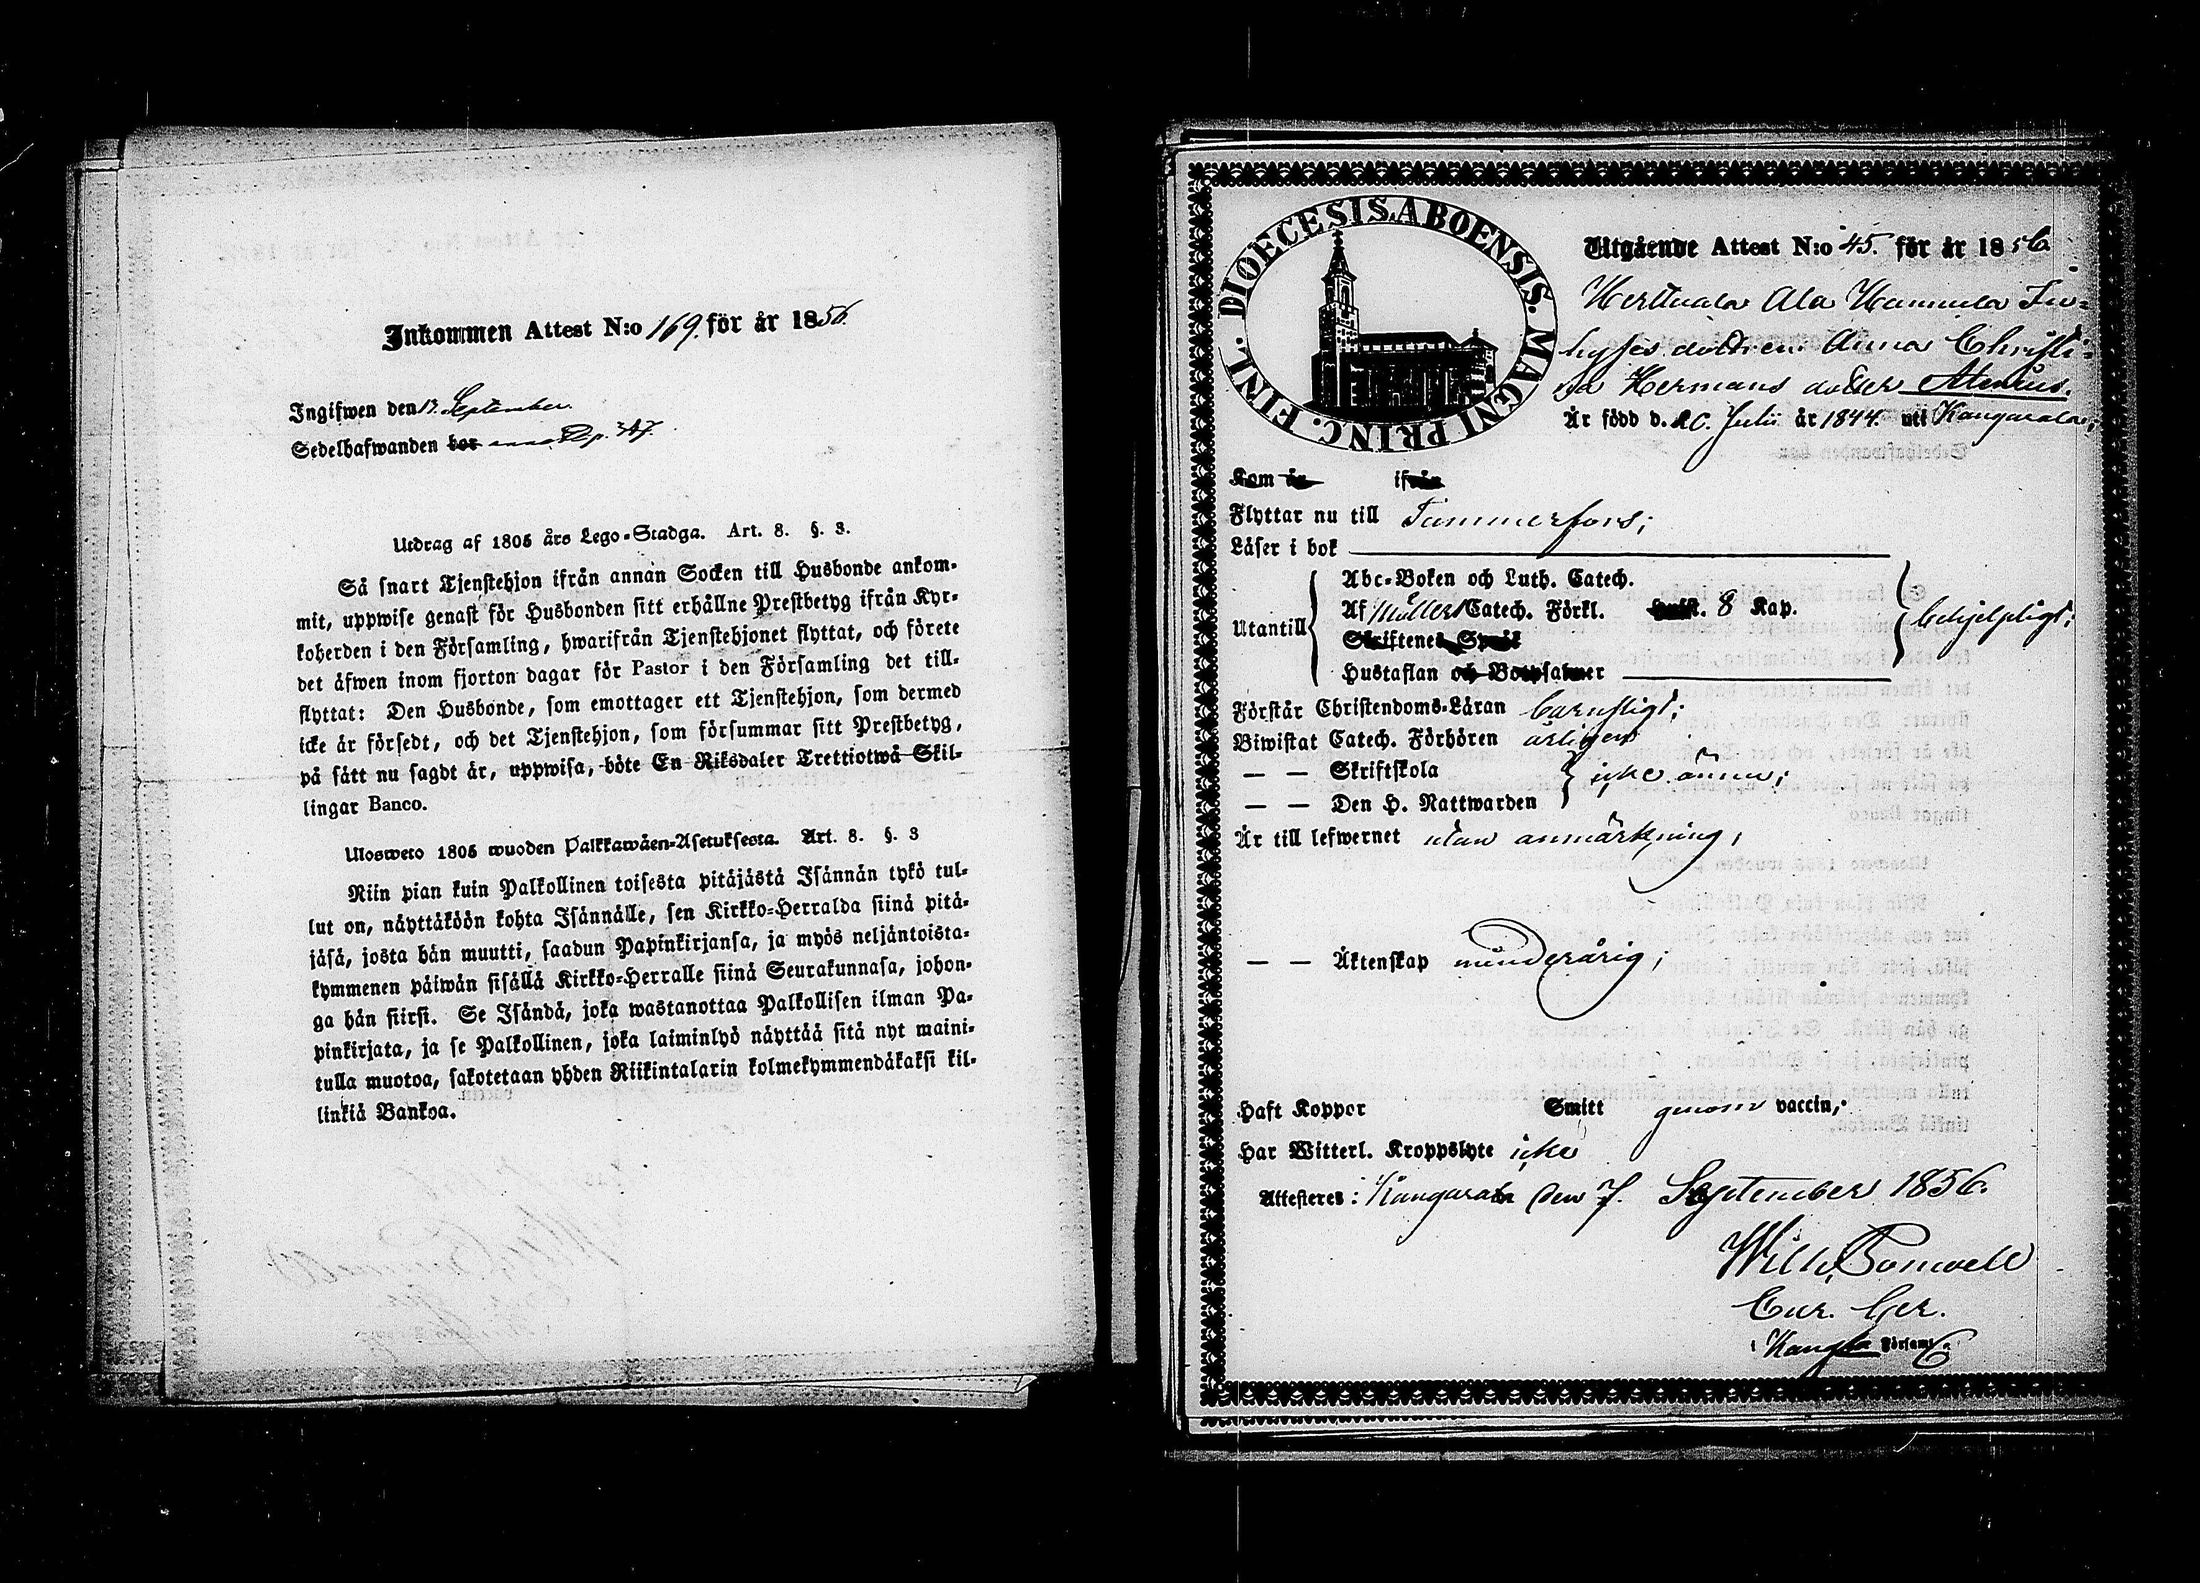 Inkommen Attest N:o 169. för år 1856.
Ingifwen den 13. September.
Sedelhafwanden bor
Utdrag af 1805 års Lego-Stadga. Art. 8. §. 3.
Så snart Tjenstehjon ifrån annan Socken till Husbonde ankom-
mit, uppwise genast för Husbonden sitt erhållne Prestbetyg ifrån Kyr-
koherden i den Församling, hwarifrån Tjenstehjonet flyttat, och förete
det äfwen inom fjorton dagar för Pastor i den Församling det till-
flyttat: Den Husbonde, som emottager ett Tjenstehjon, som dermed
icke är försedt, och det Tjenstehjon, som försummar sitt Prestbetyg,
på sätt nu sagdt är, uppwisa, böte En Riksdaler Trettiotwå Skil-
lingar Banco.
Ulosweto 1805 wuoden Palkkawäen-Asetuksesta. Art. 8. §. 3
Niin pian kuin Palkollinen toisesta pitäjästä Isännän tykö tul-
lut on, näyttäköön kohta Isännälle, sen Kirkko-Herralda siinä pitä-
jäsä, josta hän muutti, saadun Papinkirjansa, ja myös neljäntoista-
kymmenen päiwän sisällä Kirkko-Herralle siinä Seurakunnasa, johon-
ga hän siirsi. Se Isändä, joka wastanottaa Palkollisen ilman Pa-
pinkirjata, ja se Palkollinen, joka laiminlyö näyttää sitä nyt maini-
tulla muotoa, sakotetaan yhden Riikintalarin kolmekymmendäkaksi kil-
linkiä Bankoa.
DIOECESIS ABOENSIS. MAGNI PRINC. FINL.
Utgående Attest N:o 45. för år 1856
Herttuala Ala Hannula In-
hyses dottren Anna Christi-
na Hermans dotter Alenius.
Är född d. 26. Julii år 1844. uti Kangasala;
Kom år ifrån
Flyttar nu till Tammerfors;
Läser i bok
Utantill
Abc-Boken och Luth. Catech.
Af Möllers Catech. Förkl. 8 Kap.
Skriftenes Språk
Hustaflan och Botpsalmer
behjelpligt;
Förstår Christendoms-Läran barnsligt;
Biwistat Catech. Förhören årligen
— — Skriftskola
— — Den H. Nattwarden
icke ännu;
Är till lefwernet utan anmärkning;
— — Äktenskap minderårig;
Haft Koppor Smitt genom vaccin;
Har Witterl. Kroppslyte icke
Attesteres: Kangasala den 7. September 1856.
Wilh.
Cur. Ger.
Kangla Församl.